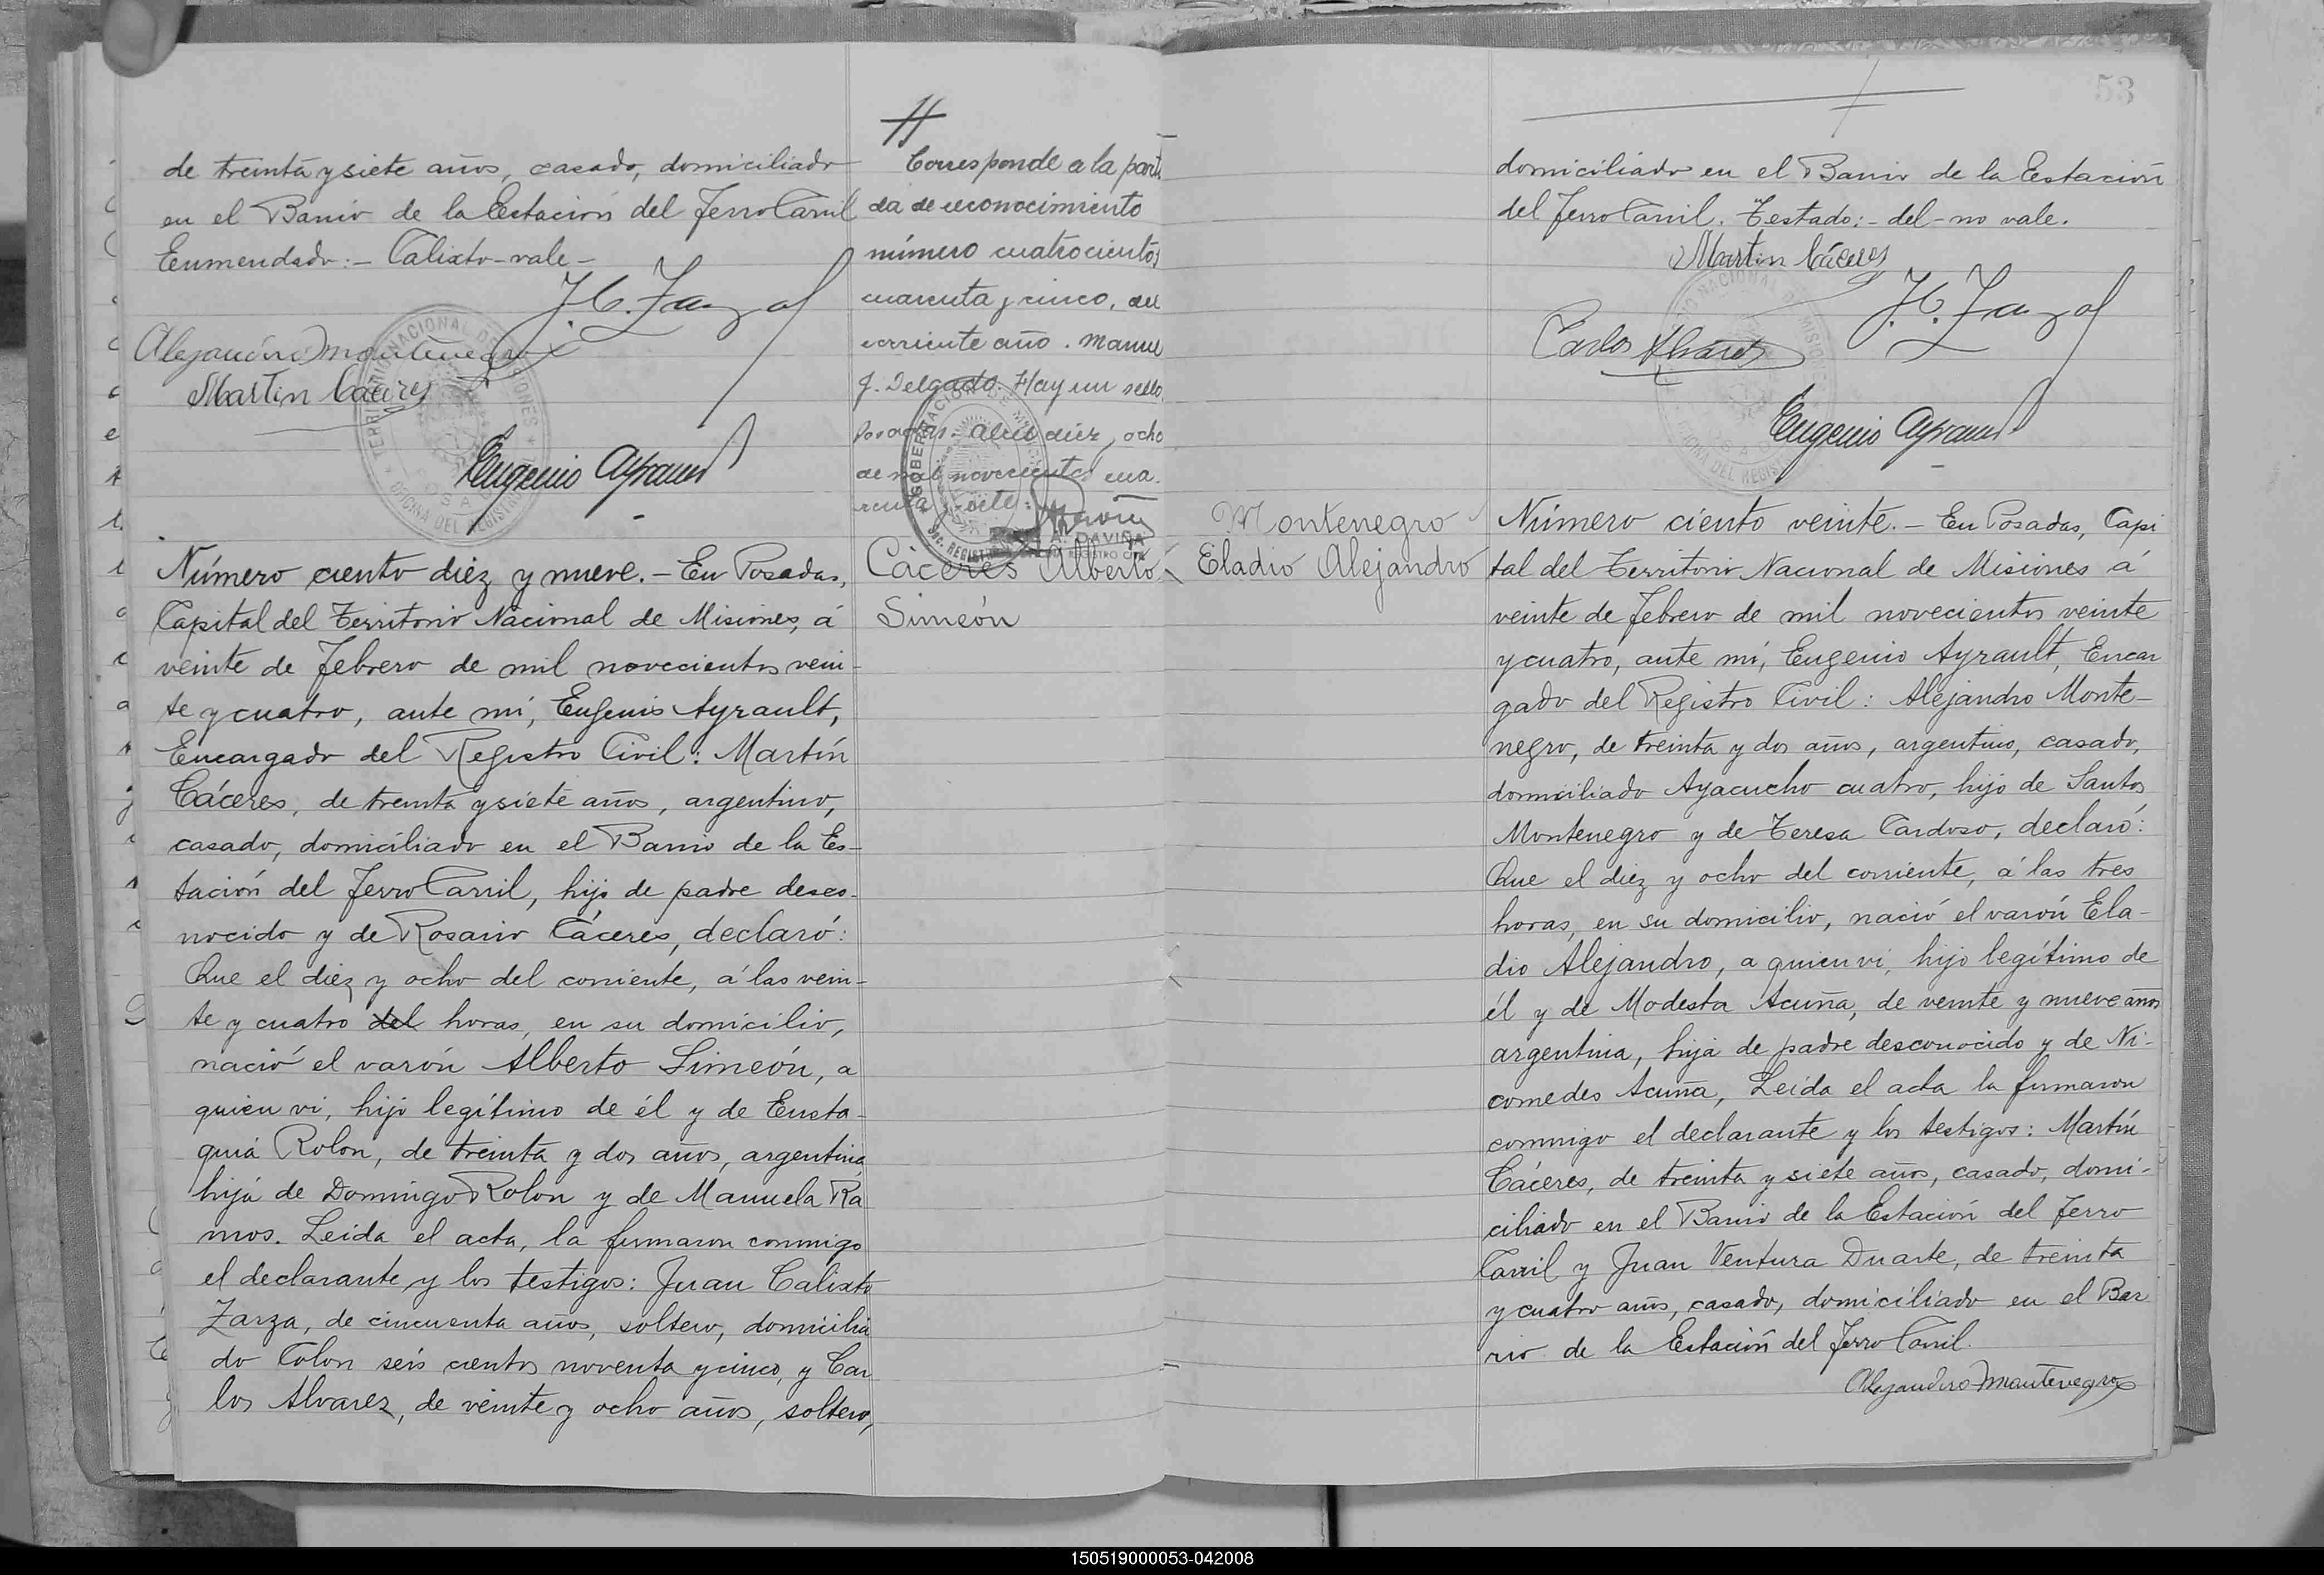 de treinta y siete años, casado, domiciliado
en el Barrio de la Estación del FerroCarril
Enmendado:- Calixto-vale-
J.C. Zarza
Alejandro Montenegro
Martin Cáceres
Eugenio Ayrault
Número ciento diéz y nueve.- En Posadas,
Capital del Territorio Nacional de Misiones, á
veinte de Febrero de mil novecientos vein-
te y cuatro, ante mí, Eugenio Ayrault,
Encargado del Registro Civil: Martín
Cáceres, de treinta y siete años, argentino,
casado, domiciliado en el Barrio de la Es-
tación del FerroCarril, hijo de padre desco-
nocido y de Rosario Cáceres, declaró:
Que el diez y ocho del corriente, á las vein-
te y cuatro del horas, en su domicilio,
nació el varón Alberto Simeón, a
quien vi, hijo legítimo de él y de Eusta-
quia Rolon, de treinta y dos años, argentina
hija de Domingo Rolon y de Manuela Ra
mos. Leida el acta, la firmaron conmigo
el declarante y los testigos: Juan Calixto
Zarza, de cincuenta años, soltero, domicilia
do Colon seis cientos noventa y cinco, y Car
los Alvarez, de veinte y ocho años, soltero,
Corresponde a la parti
da de reconocimiento
número cuatrocientos
cuarenta y cinco, del
corriente año. Manuel
J. Delgado. Hay un sello.
Posadas. abril diez y ocho
de mil novecientos cua-
renta y siete:
Cáceres Alberto
Simeón
53
domiciliado en el Barrio de la Estación
del FerroCarril. Testado:- del-no vale.
Martin Cáceres
J.C. Zarza
Carlos Alvarez
Eugenio Ayrault
Montenegro
Eladio Alejandro
Número ciento veinte.- En Posadas, Capi
tal del Territorio Nacional de Misiones á
veinte de Febrero de mil novecientos veinte
y cuatro, ante mí, Eugenio Ayrault, Encar
gado del Registro Civil: Alejandro Monte-
negro, de treinta y dos años, argentino, casado,
domiciliado Ayacucho cuatro, hijo de Santos
Montenegro y de Teresa Cardoso, declaró:
Que el diez y ocho del corriente, á las tres
horas, en su domicilio, nació el varón Ela-
dio Alejandro, a quien vi, hijo legítimo de
él y de Modesta Acuña, de veinte y nueve años
argentina, hija de padre desconocido y de Ni-
comedes Acuña, Leida el acta la firmaron
conmigo el declarante y los testigos: Martín
Cáceres, de treinta y siete años, casado, domi-
ciliado en el Barrio de la Estación del Ferro
Carril y Juan Ventura Duarte, de treinta
y cuatro años, casado, domiciliado en el Bar
rio de la Estación del FerroCarril.
Alejandro Montenegro
150519000053-042008